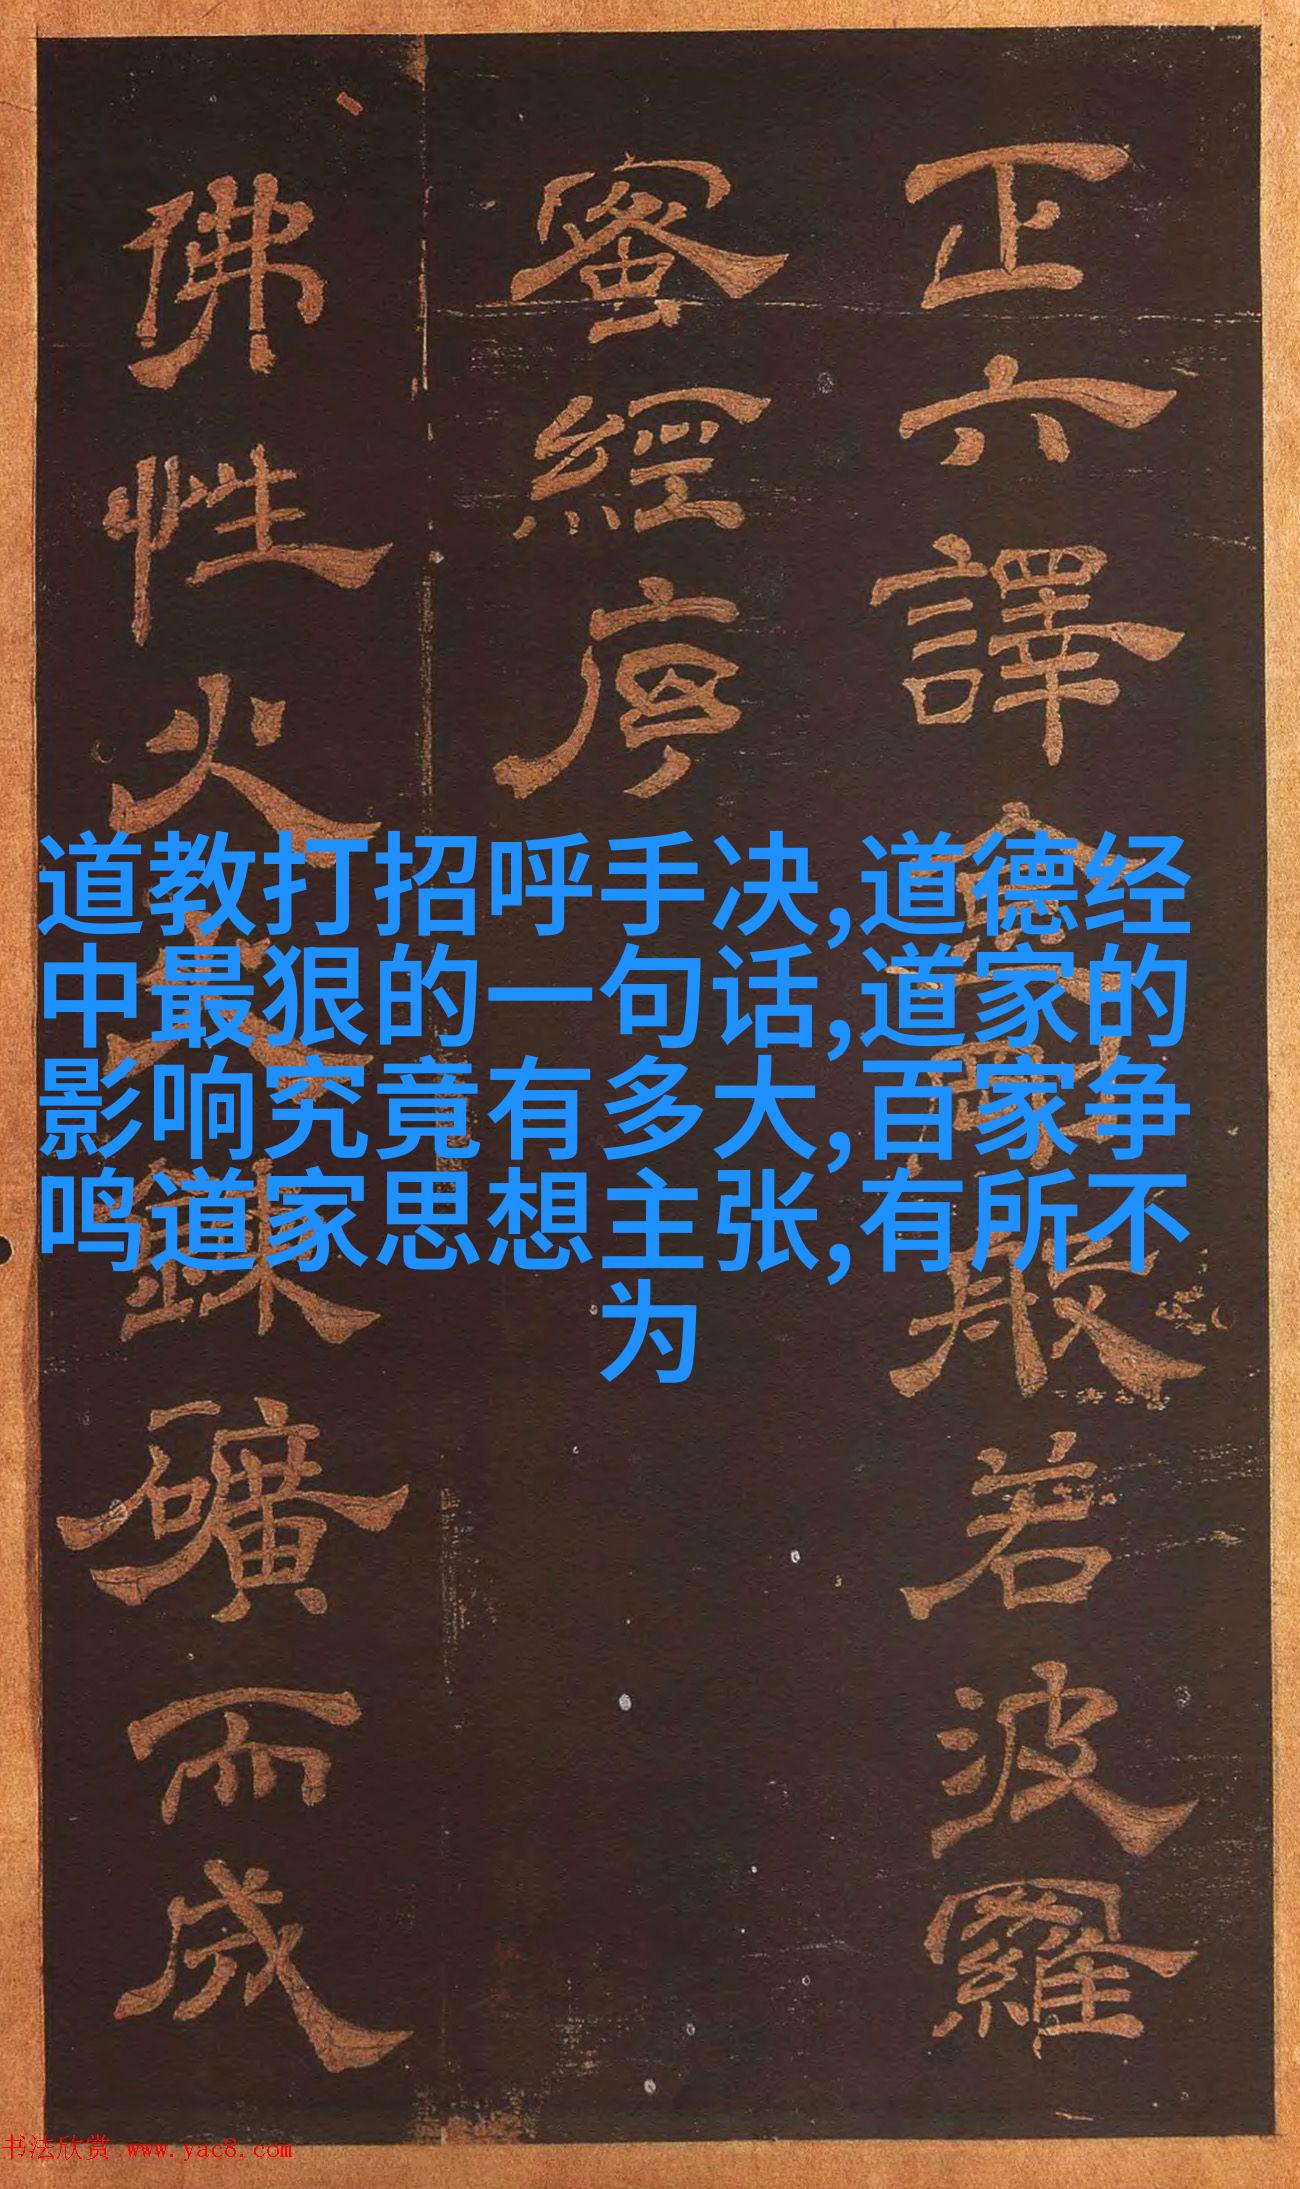 道教打招呼手决,道德经
中最狠的一句话,道家的
影响究竟有多大,百家争
鸣道家思想主张,有所不
为
正六譯金剛般若波羅
蜜經序
佛性火鍊礦而成
书法欣赏 www.yac8.com